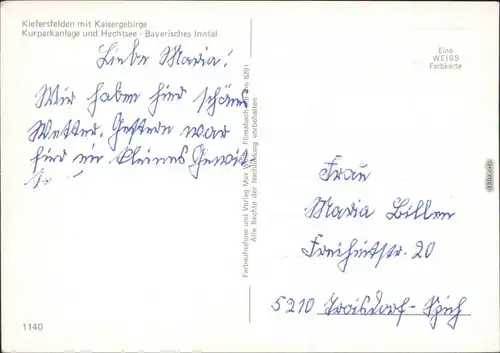 Kiefersfelden mit Kaisergebirge
Kurparkanlage und Hechtsee - Bayerisches Inntal
Liebe Maria!
Wir haben hier schönes
Wetter. Gestern war
hier ein kleines Gewit-
Farbaufnahme und Verlag Max
Alle Rechte der Nachbildung vorbehalten
Eine
WEISS
Farbkarte
Frau
Maria Billen
Freiheitstr. 20
5210 Troisdorf-Spich
1140